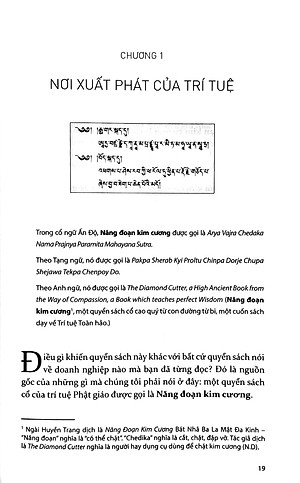 CHƯƠNG 1
NƠI XUẤT PHÁT CỦA TRÍ TUỆ
Trong cổ ngữ Ấn Độ, Năng đoạn kim cương được gọi là Arya Vajra Chedaka
Nama Prajnya Paramita Mahayana Sutra.
Theo Tạng ngữ, nó được gọi là Pakpa Sherab Kyi Proltu Chinpa Dorje Chupa
Shejawa Tekpa Chenpoy Do.
Theo Anh ngữ, nó được gọi là The Diamond Cutter, a High Ancient Book from
the Way of Compassion, a Book which teaches perfect Wisdom (Năng đoạn
kim cương¹, một quyển sách cổ cao quý từ con đường từ bi, một cuốn sách
dạy về Trí tuệ Toàn hảo.)
Điều gì khiến quyển sách này khác với bất cứ quyển sách nói
về doanh nghiệp nào mà bạn đã từng đọc? Đó là nguồn
gốc của những gì mà chúng tôi phải nói ở đây: một quyển sách
cổ của trí tuệ Phật giáo được gọi là Năng đoạn kim cương.
1 Ngài Huyền Trang dịch là Năng Đoạn Kim Cương Bát Nhã Ba La Mật Đa Kinh -
"Năng đoạn" nghĩa là "có thể chặt". "Chedika" nghĩa là cắt, chặt, đập vỡ. Tác giả dịch
là The Diamond Cutter nghĩa là người hay dụng cụ dùng để chặt kim cương (N.D).
19